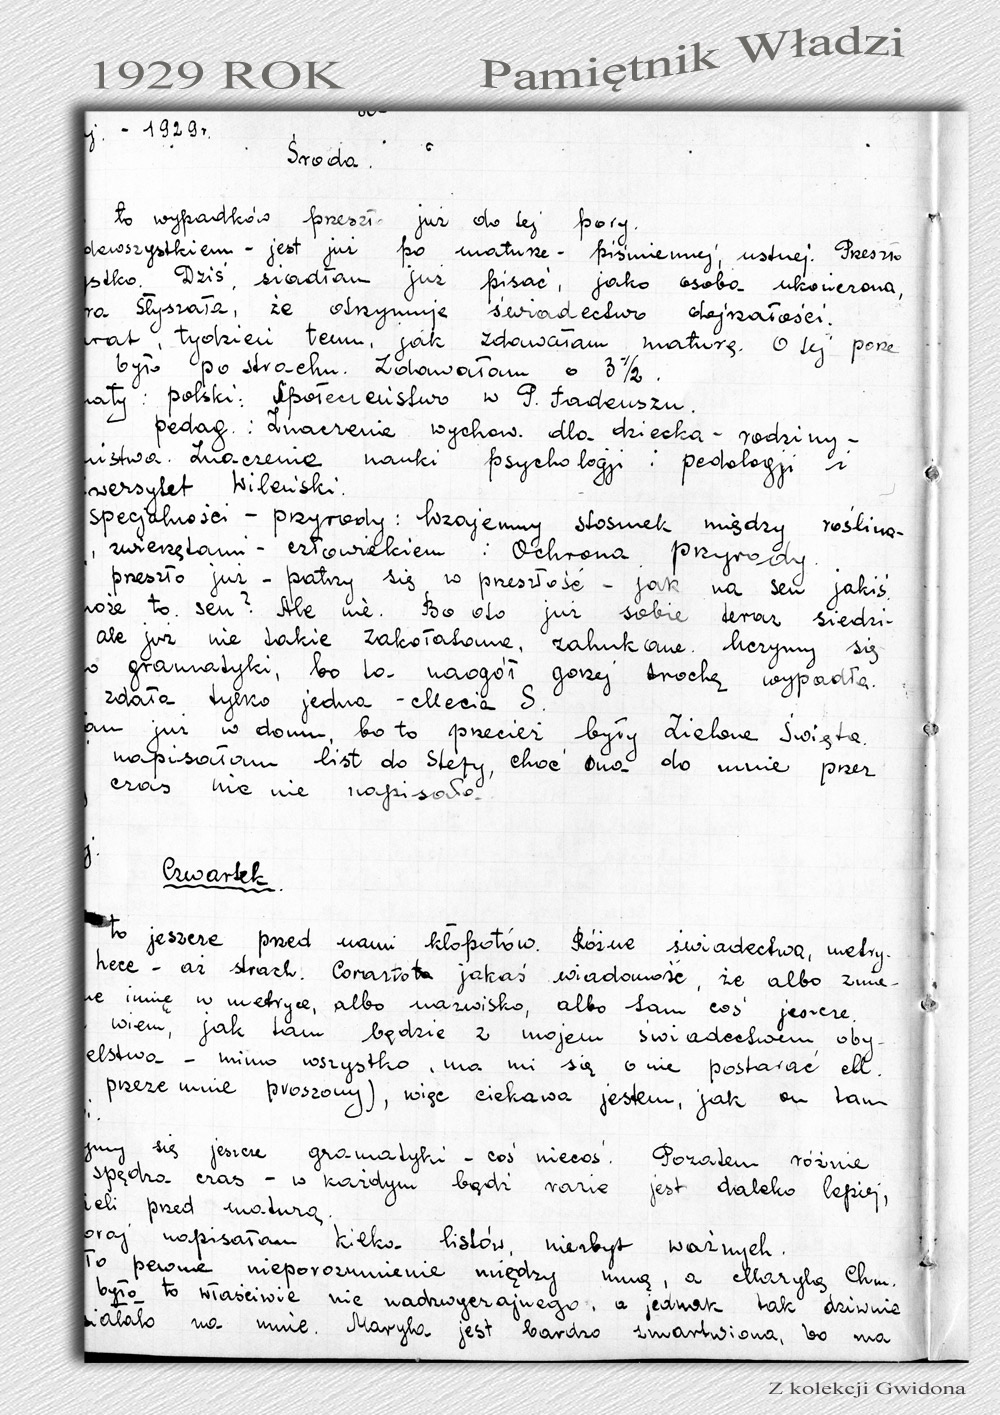 1929 ROK Pamiętnik Władzi
j. - 1929 r.
Środa.
to wypadków preszło już do tej pory.
dewszystkiem - jest już po maturze - piśmiennej, ustnej. Preszło
ystko. Dziś, siadłam już pisać, jako osoba ukończona,
ra słyszała, że otrzymuje świadectwo dojrzałości.
urat, tydzień temu, jak zdawałam maturę. O tej porze
było po strachu. Zdawałam o 3 1/2.
maty: polski: Społeczeństwo w P. Tadeuszu.
pedag.: Znaczenie wychow. dla dziecka - rodziny -
ństwa. Znaczenie nauki psychologji i pedologji i
wersytet Wileński.
specjalności - przyrody: Wzajemny stosunek między roślina-
, zwierzętami - człowiekiem i Ochrona przyrody.
preszło już - patrzy się w preszłość - jak na sen jakiś.
może to sen? Ale nie. Bo oto już sobie teraz siedzi-
ale już nie takie zakołatane, zahukane. Uczymy się
o gramatyki, bo to naogół gorzej trochę wypadła.
zdała tylko jedna - Mecia S.
am już w domu, bo to przecież były Zielone Święta.
napisałam list do Stefy, choć ona do mnie przez
czas nic nie napisała.
j.
Czwartek.
to jeszcze przed nami kłopotów. Różne świadectwa, metry-
hece - aż strach. Coraz to jakaś wiadomość, że albo zmie-
ne imię w metryce, albo nazwisko, albo tam coś jeszcze.
wiem, jak tam będzie z mojem świadectwem oby-
elstwa - mimo wszystko, ma mi się o nie postarać M.
przeze mnie proszony), więc ciekawa jestem, jak on tam
i.
ymy się jeszcze gramatyki - coś niecoś. Pozatem różnie
spędza czas - w każdym bądź razie jest daleko lepiej,
ieli przed maturą.
oraj napisałam kilka listów, niezbyt ważnych.
ło pewne nieporozumienie między mną, a Marylą Chm.
było to właściwie nic nadzwyczajnego, a jednak tak dziwnie
iałało na mnie. Maryla jest bardzo zmartwiona, bo ma
Z kolekcji Gwidona